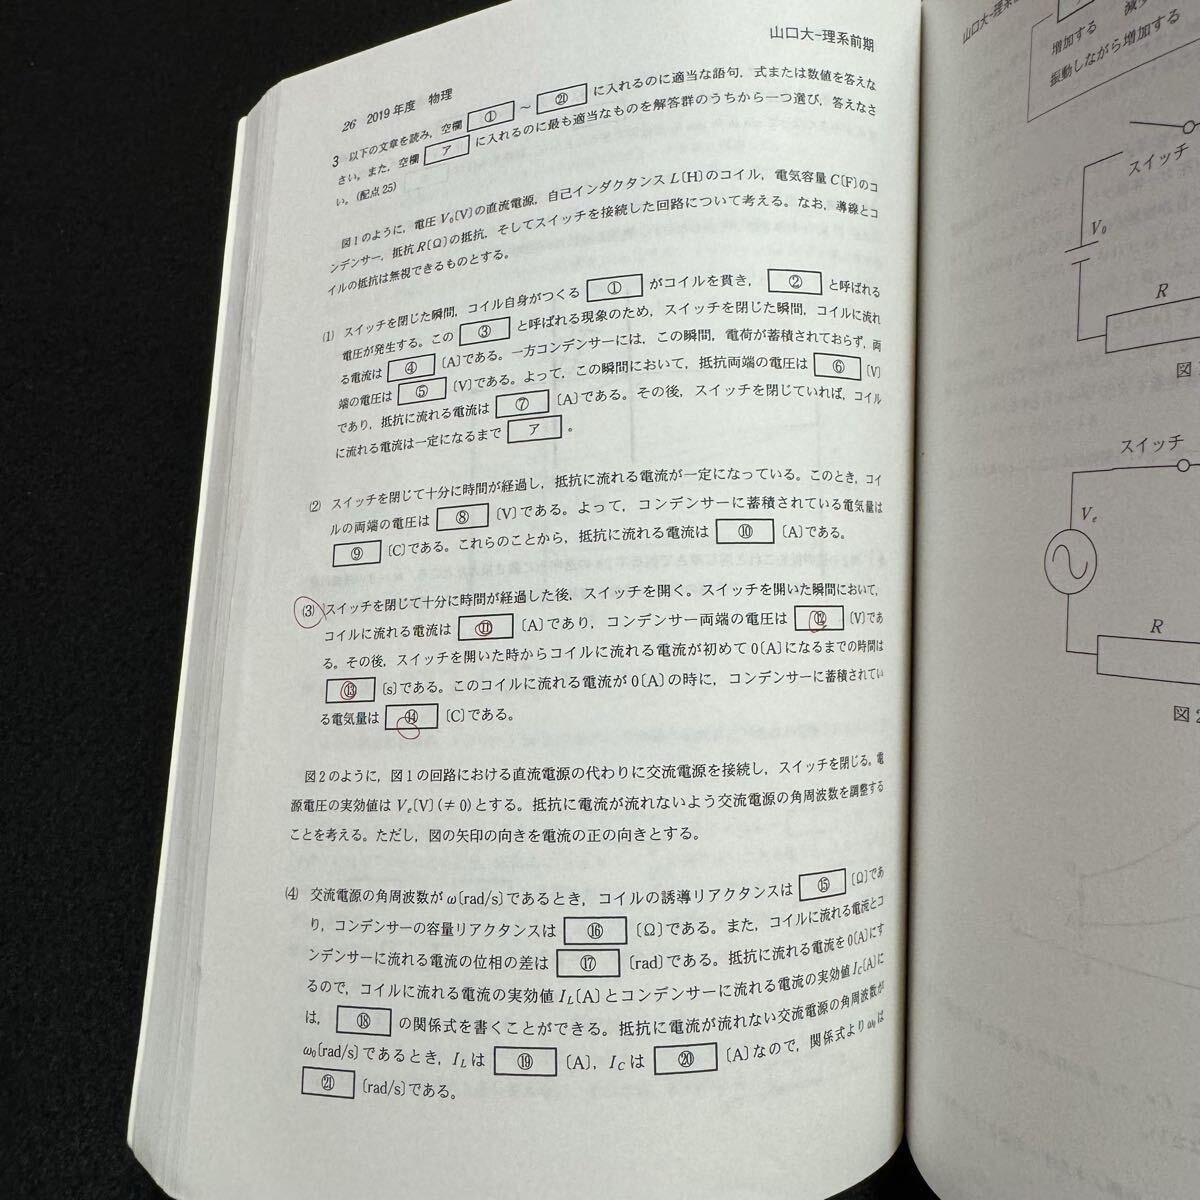 山口大-理系前期
26 2019年度 物理
3 以下の文章を読み,空欄 ① ~ ㉑ に入れるのに適当な語句,式または数値を答えな
さい。また,空欄 ア に入れるのに最も適当なものを解答群のうちから一つ選び,答えなさ
い。(配点25)
図1のように,電圧V₀〔V〕の直流電源,自己インダクタンスL〔H〕のコイル,電気容量C〔F〕のコ
ンデンサー,抵抗R〔Ω〕の抵抗,そしてスイッチを接続した回路について考える。なお,導線とコ
イルの抵抗は無視できるものとする。
(1) スイッチを閉じた瞬間,コイル自身がつくる ① がコイルを貫き, ② と呼ばれる
電圧が発生する。この ③ と呼ばれる現象のため,スイッチを閉じた瞬間,コイルに流れ
る電流は ④ 〔A〕である。一方コンデンサーには,この瞬間,電荷が蓄積されておらず,両
端の電圧は ⑤ 〔V〕である。よって,この瞬間において,抵抗両端の電圧は ⑥ 〔V〕
であり,抵抗に流れる電流は ⑦ 〔A〕である。その後,スイッチを閉じていれば,コイル
に流れる電流は一定になるまで ア 。
(2) スイッチを閉じて十分に時間が経過し,抵抗に流れる電流が一定になっている。このとき,コイ
ルの両端の電圧は ⑧ 〔V〕である。よって,コンデンサーに蓄積されている電気量は
⑨ 〔C〕である。これらのことから,抵抗に流れる電流は ⑩ 〔A〕である。
(3) スイッチを閉じて十分に時間が経過した後,スイッチを開く。スイッチを開いた瞬間において,
コイルに流れる電流は ⑪ 〔A〕であり,コンデンサー両端の電圧は ⑫ 〔V〕であ
る。その後,スイッチを開いた時からコイルに流れる電流が初めて0〔A〕になるまでの時間は
⑬ 〔s〕である。このコイルに流れる電流が0〔A〕の時に,コンデンサーに蓄積されてい
る電気量は ⑭ 〔C〕である。
図2のように,図1の回路における直流電源の代わりに交流電源を接続し,スイッチを閉じる。電
源電圧の実効値はVₑ〔V〕(≠0)とする。抵抗に電流が流れないよう交流電源の角周波数を調整する
ことを考える。ただし,図の矢印の向きを電流の正の向きとする。
(4) 交流電源の角周波数がω〔rad/s〕であるとき,コイルの誘導リアクタンスは ⑮ 〔Ω〕であ
り,コンデンサーの容量リアクタンスは ⑯ 〔Ω〕である。また,コイルに流れる電流とコ
ンデンサーに流れる電流の位相の差は ⑰ 〔rad〕である。抵抗に流れる電流を0〔A〕にす
るので,コイルに流れる電流の実効値I_L〔A〕とコンデンサーに流れる電流の実効値I_C〔A〕に
は, ⑱ の関係式を書くことができる。抵抗に電流が流れない交流電源の角周波数が
ω₀〔rad/s〕であるとき,I_Lは ⑲ 〔A〕,I_Cは ⑳ 〔A〕なので,関係式よりω₀は
㉑ 〔rad/s〕である。
山口大-理系
増加する
振動しながら増加する
スイッチ
V₀
R
図
スイッチ
Vₑ
R
図2